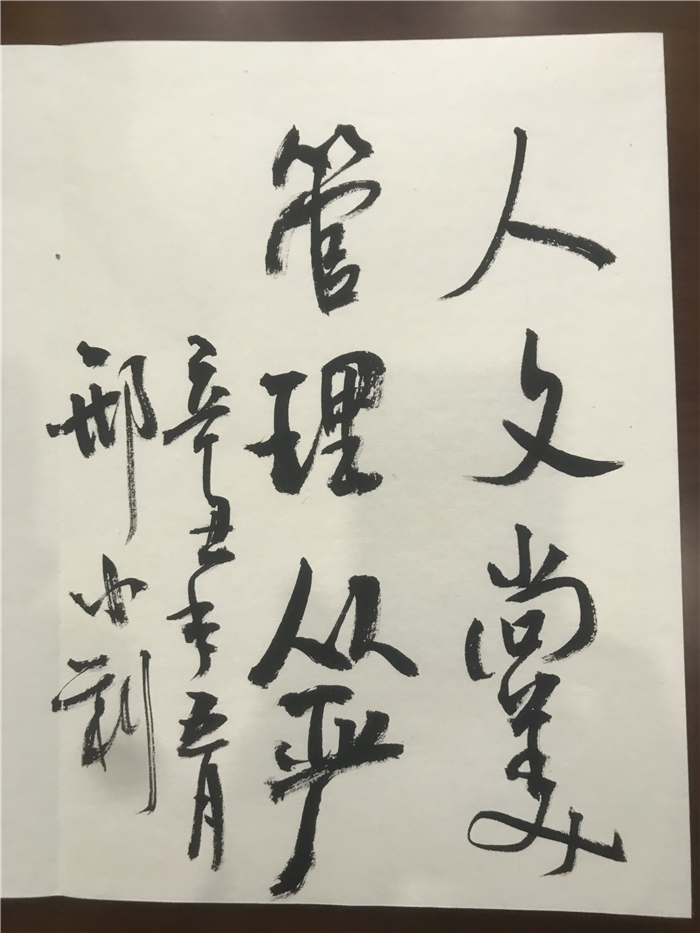 人文尚美
管理从严
辛丑年五月
邢小利